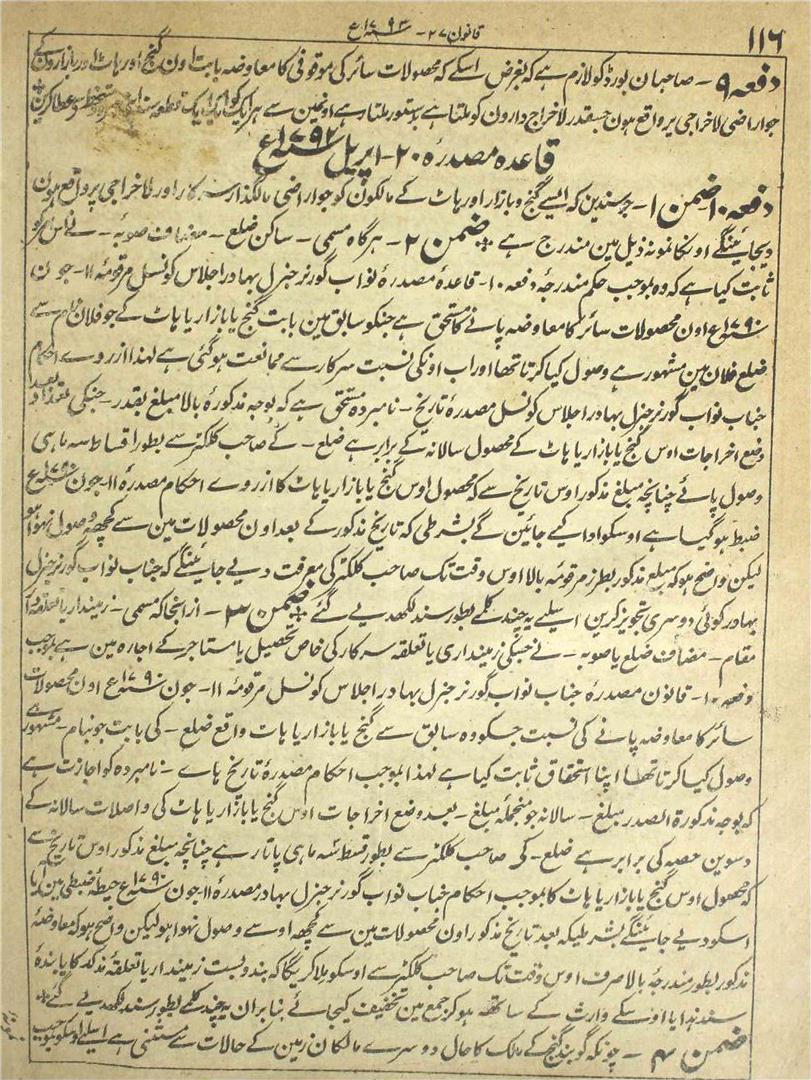 ۱۱۶
قانون ۲۷ - ۱۷۹۳ع
دفعہ ۹ - صاحبان بورڈ کو لازم ہے کہ بغرض اسکے کہ محصولات سائر کی موقوفی کا معاوضہ بابت اون گنج اور ہاٹ اور بازارون کے
جو اراضی لاخراجی پر واقع ہون جسقدر لاخراج دارون کو ملتا ہے بدستور ملتا رہے اونمین سے ہر ایک کو ایک ایک قطعہ سند اپنے دستخط سے عطا کرین
قاعدہ مصدرہ ۲۰ - اپریل ۱۷۹۲ع
دفعہ ۱۰ ضمن ۱ - جو سندین کہ ایسے گنج و بازار اور ہاٹ کے مالکون کو جو اراضی مالگذار سرکار اور لاخراجی پر واقع ہون
دیجائینگے اونکا نمونہ ذیل مین مندرج ہے ضمن ۲ - ہرگاہ مسمی - ساکن ضلع - مضاف صوبہ - نے اس کو
ثابت کیا ہے کہ وہ بموجب حکم مندرجۂ دفعہ ۱۰ - قاعدۂ مصدرۂ نواب گورنر جنرل بہادر اجلاس کونسل مرقومۂ ۱۱ - جون
۱۷۹۰ع اون محصولات سائر کا معاوضہ پانے کا مستحق ہے جنکو سابق مین بابت گنج یا بازار یا ہاٹ کے جو فلان نام سے
ضلع فلان مین مشہور ہے وصول کیا کرتا تھا اور اب اونکی نسبت سرکار سے ممانعت ہوگئی ہے لہذا از روے احکام
جناب نواب گورنر جنرل بہادر اجلاس کونسل مصدرۂ تاریخ - نامبردہ مستحق ہے کہ بوجہ مذکورۂ بالا مبلغ بقدر - جنکی تعداد بعد
وضع اخراجات اوس گنج یا بازار یا ہاٹ کے محصول سالانہ کے برابر ہے ضلع - کے صاحب کلکٹر سے بطور اقساط سہ ماہی
وصول پائے چنانچہ مبلغ مذکور اوس تاریخ سے کہ محصول اوس گنج یا بازار یا ہاٹ کا از روے احکام مصدرۂ ۱۱ - جون ۱۷۹۰ع
ضبط ہوگیا ہے اوسکو ادا کیے جائین گے بشرطی کہ تاریخ مذکور کے بعد اون محصولات مین سے کچھ وصول نہوا ہو
لیکن واضح ہو کہ مبلغ مذکور بطرز مرقومۂ بالا اوس وقت تک صاحب کلکٹر کی معرفت دیے جائینگے کہ جناب نواب گورنر جنرل
بہادر کوئی دوسری تجویز کرین اسلیے یہ چند کلمے بطور سند لکھدیے گئے ضمن ۳ - از انجا کہ مسمی - زمیندار یا تعلقہ دار
مقام - مضاف ضلع یا صوبہ - نے جسکی زمینداری یا تعلقہ سرکار کی خاص تحصیل یا مستاجر کے اجارہ مین ہے بموجب
دفعہ ۱۰ - قانون مصدرۂ جناب نواب گورنر جنرل بہادر اجلاس کونسل مرقومۂ ۱۱ - جون ۱۷۹۰ع اون محصولات
سائر کا معاوضہ پانے کی نسبت جسکو وہ سابق سے گنج یا بازار یا ہاٹ واقع ضلع - کی بابت جو بنام - مشہور ہے
وصول کیا کرتا تھا اپنا استحقاق ثابت کیا ہے لہذا بموجب احکام مصدرۂ تاریخ ہاے - نامبردہ کو اجازت ہے
کہ بوجہ مذکورۃ الصدر مبلغ - سالانہ جو منجملۂ مبلغ - بعد وضع اخراجات اوس گنج یا بازار یا ہاٹ کی واصلات سالانہ کے
دسوین حصہ کی برابر ہے ضلع - کی صاحب کلکٹر سے بطور قسط سہ ماہی پاتا رہے چنانچہ مبلغ مذکور اوس تاریخ سے
کہ محصول اوس گنج یا بازار یا ہاٹ کا بموجب احکام جناب نواب گورنر جنرل بہادر مصدرۂ ۱۱ جون ۱۷۹۰ع حیطۂ ضبطی مین آیا
اسکو دیے جائینگے بشرطیکہ بعد تاریخ مذکور اون محصولات مین سے کچھ اوسے وصول نہوا ہو لیکن واضح ہو کہ معاوضۂ
مذکور بطور مندرجۂ بالا صرف اوس وقت تک صاحب کلکٹر سے اوسکو ملا کریگا کہ بندوبست زمیندار یا تعلقۂ مذکور کا پابندۂ
سند ہذا یا اوسکے وارث کے ساتھ ہو کر جمع مین تخفیف کیجائے بنابران یہ چند کلمے بطور سند لکھدیے گئے
ضمن ۴ - چونکہ گوبند گنج کے مالک کا حال دوسرے مالکان زمین کے حالات سے مستثنی ہے اسلیے اوسکو بموجب